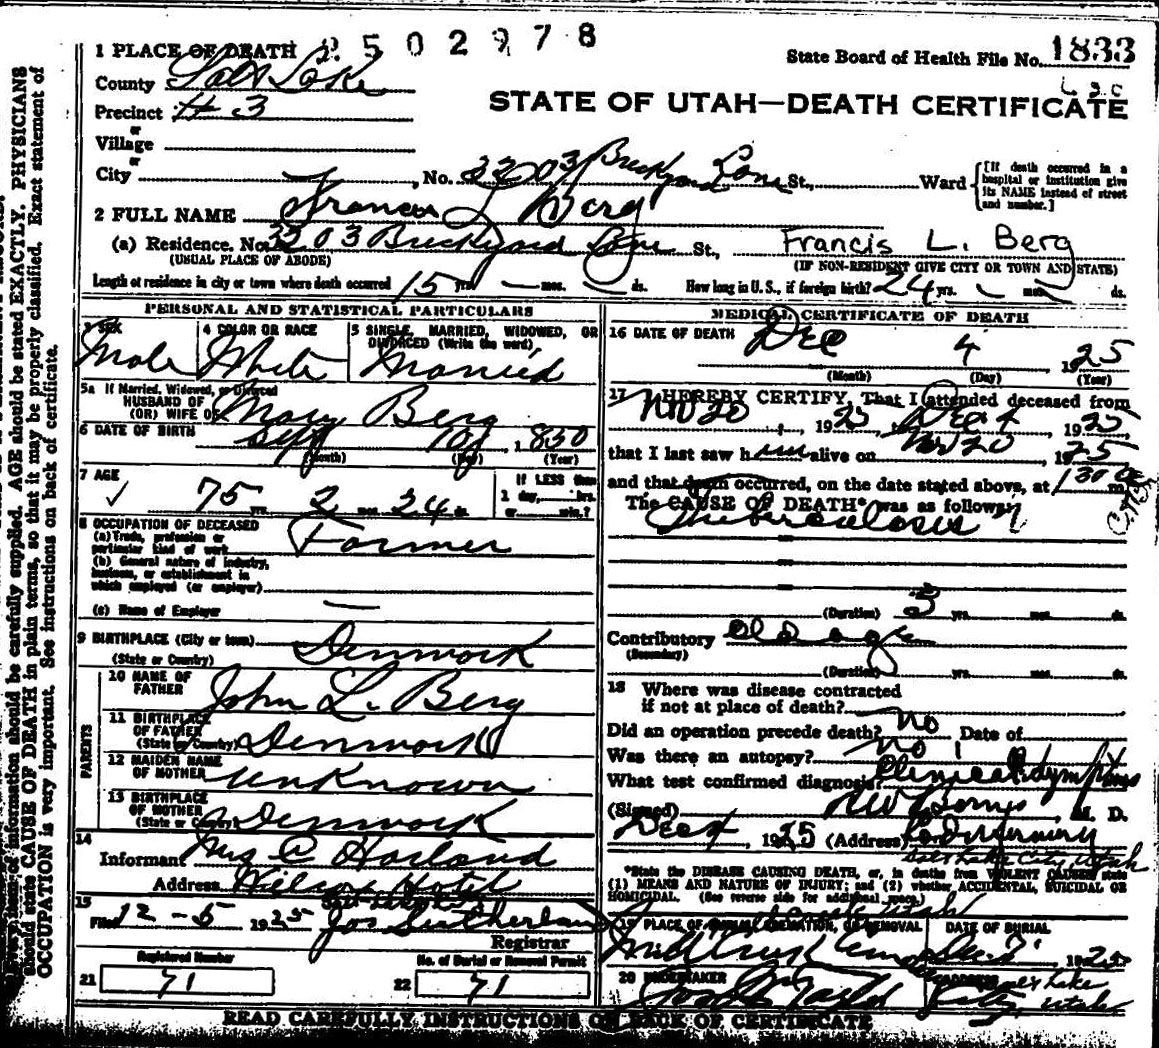 2502978
State Board of Health File No. 1833
1 PLACE OF DEATH
County Salt Lake
Precinct #3
STATE OF UTAH—DEATH CERTIFICATE
or
Village
or
City , No. 2203 Brickyard Lane St., Ward
[If death occurred in a hospital or institution give its NAME instead of street and number.]
2 FULL NAME Francis L Berg
(a) Residence. No. 2203 Brickyard Lane St., Francis L. Berg
(USUAL PLACE OF ABODE) (IF NON-RESIDENT GIVE CITY OR TOWN AND STATE)
Length of residence in city or town where death occurred 15 yrs. — mos. — ds. How long in U. S., if foreign birth? 24 yrs. — mos. — ds.
PERSONAL AND STATISTICAL PARTICULARS
3 SEX Male
4 COLOR OR RACE White
5 SINGLE, MARRIED, WIDOWED, OR DIVORCED (Write the word) Married
5a If Married, Widowed, or Divorced
HUSBAND OF
(OR) WIFE OF Mary Berg
6 DATE OF BIRTH Sept 10, 1850
(Month) (Day) (Year)
7 AGE 75 yrs. 2 mos. 24 ds.
If LESS than 1 day, hrs. or min.?
8 OCCUPATION OF DECEASED
(a) Trade, profession or particular kind of work Farmer
(b) General nature of industry, business, or establishment in which employed (or employer)
(c) Name of Employer —
9 BIRTHPLACE (City or town)
(State or Country) Denmark
PARENTS
10 NAME OF FATHER John L. Berg
11 BIRTHPLACE OF FATHER (State or Country) Denmark
12 MAIDEN NAME OF MOTHER Unknown
13 BIRTHPLACE OF MOTHER (State or Country) Denmark
14
Informant Mrs C Harland
Address Wilcox Hotel
15
Filed 12-5 1925 Jos Sutherland
Registrar
Registered Number
21 71
No. of Burial or Removal Permit
22 71
MEDICAL CERTIFICATE OF DEATH
16 DATE OF DEATH Dec 4 1925
(Month) (Day) (Year)
17 I HEREBY CERTIFY, That I attended deceased from
Nov 20, 1925, Dec 4, 1925
that I last saw him alive on Nov 20, 1925
and that death occurred, on the date stated above, at 130 m.
The CAUSE OF DEATH* was as follows:
Tuberculosis
(Duration) 3 yrs. mos. ds.
Contributory Old age
(Secondary)
(Duration) yrs. mos. ds.
18 Where was disease contracted
if not at place of death?
Did an operation precede death? no Date of
Was there an autopsy? no
What test confirmed diagnosis? Clinical Symptoms
(Signed) M. D.
Dec 4, 1925 (Address) Co Infirmary
Salt Lake City, Utah
*State the DISEASE CAUSING DEATH, or, in deaths from VIOLENT CAUSES state
(1) MEANS AND NATURE OF INJURY; and (2) whether ACCIDENTAL, SUICIDAL OR
HOMICIDAL. (See reverse side for additional space.)
19 PLACE OF BURIAL, CREMATION, OR REMOVAL
DATE OF BURIAL
1925
20 UNDERTAKER
ADDRESS
Salt Lake
City, Utah
READ CAREFULLY INSTRUCTIONS ON BACK OF CERTIFICATE
Every item of information should be carefully supplied. AGE should be stated EXACTLY. PHYSICIANS
should state CAUSE OF DEATH in plain terms, so that it may be properly classified. Exact statement of
OCCUPATION is very important. See instructions on back of certificate.